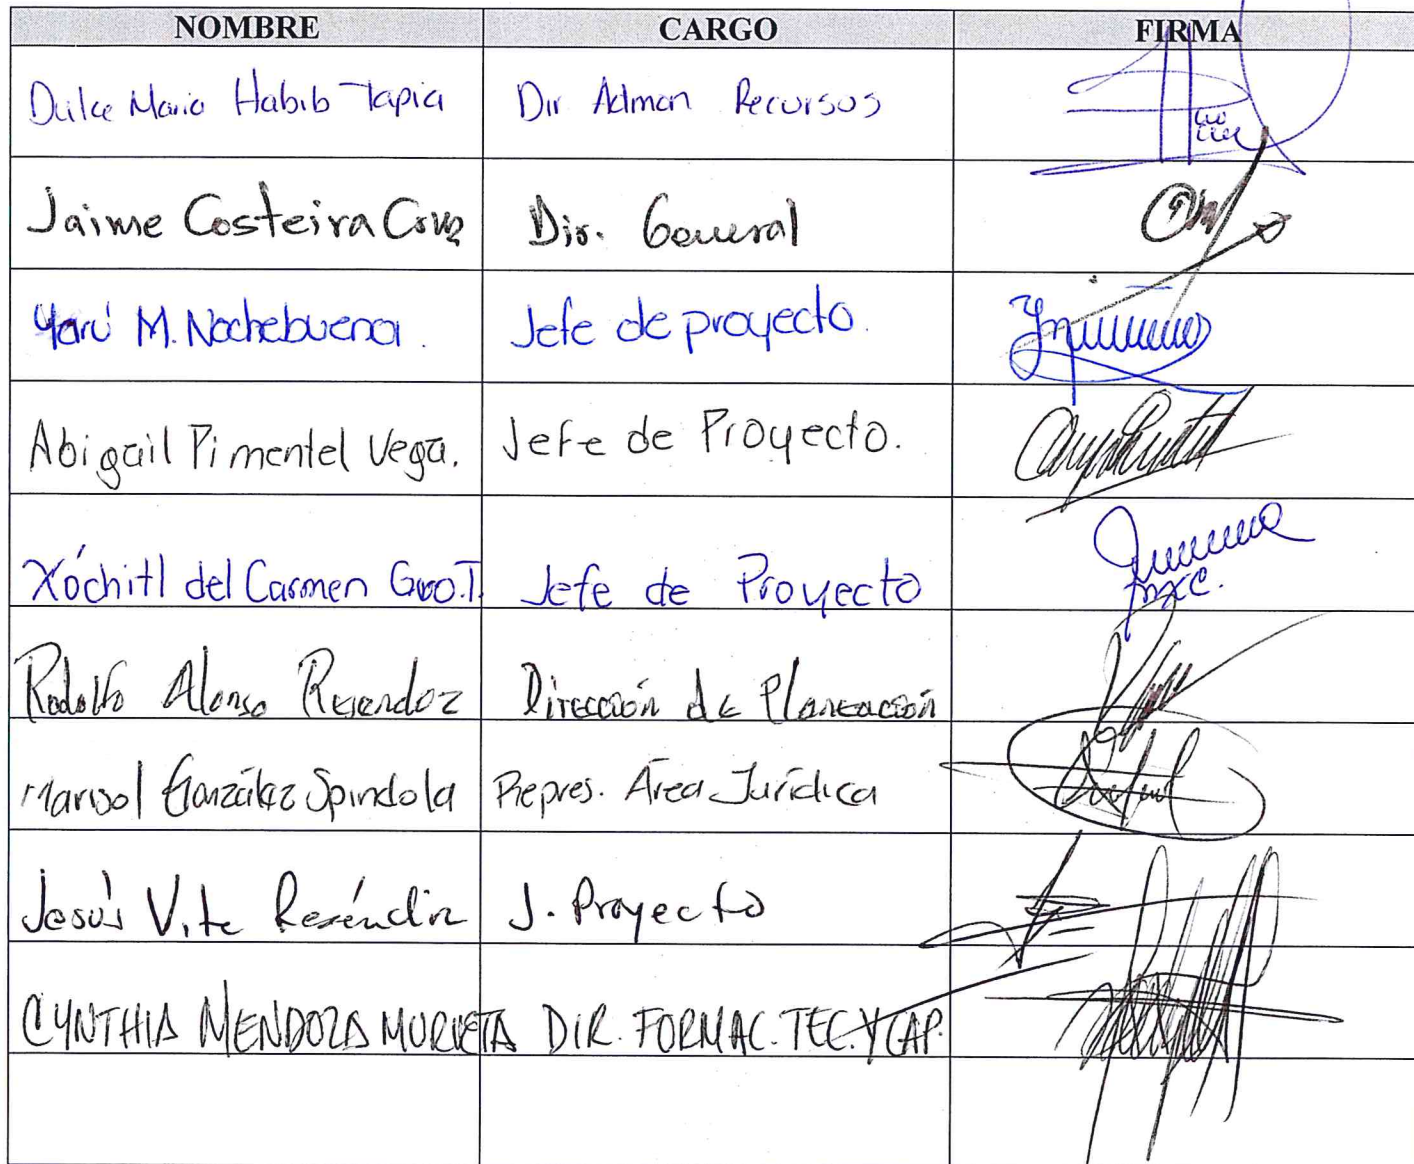 NOMBRE CARGO FIRMA
Dulce Maria Habib Tapia Dir Admon Recursos
Jaime Costeira Cruz Dir. General
Yarú M. Nochebuena. Jefe de proyecto.
Abigail Pimentel Vega. Jefe de Proyecto.
Xóchitl del Carmen Gvo.T. Jefe de Proyecto
Rodolfo Alonso Resendoz Dirección de Planeación
Marisol González Spindola Repres. Área Jurídica
Jesús Vite Reséndiz J. Proyecto
CYNTHIA MENDOZA MURUETA DIR. FORMAC. TEC. Y CAP.